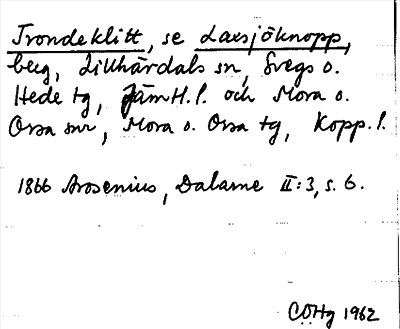 Trondeklitt, se Laxsjöknopp,
berg, Lillhärdals sn, Svegs o.
Hede tg, Jämtl. l. och Mora o.
Orsa snr, Mora o. Orsa tg, Kopp. l.
1866 Arosenius, Dalarne II:3, s. 6.
CÖHg 1962